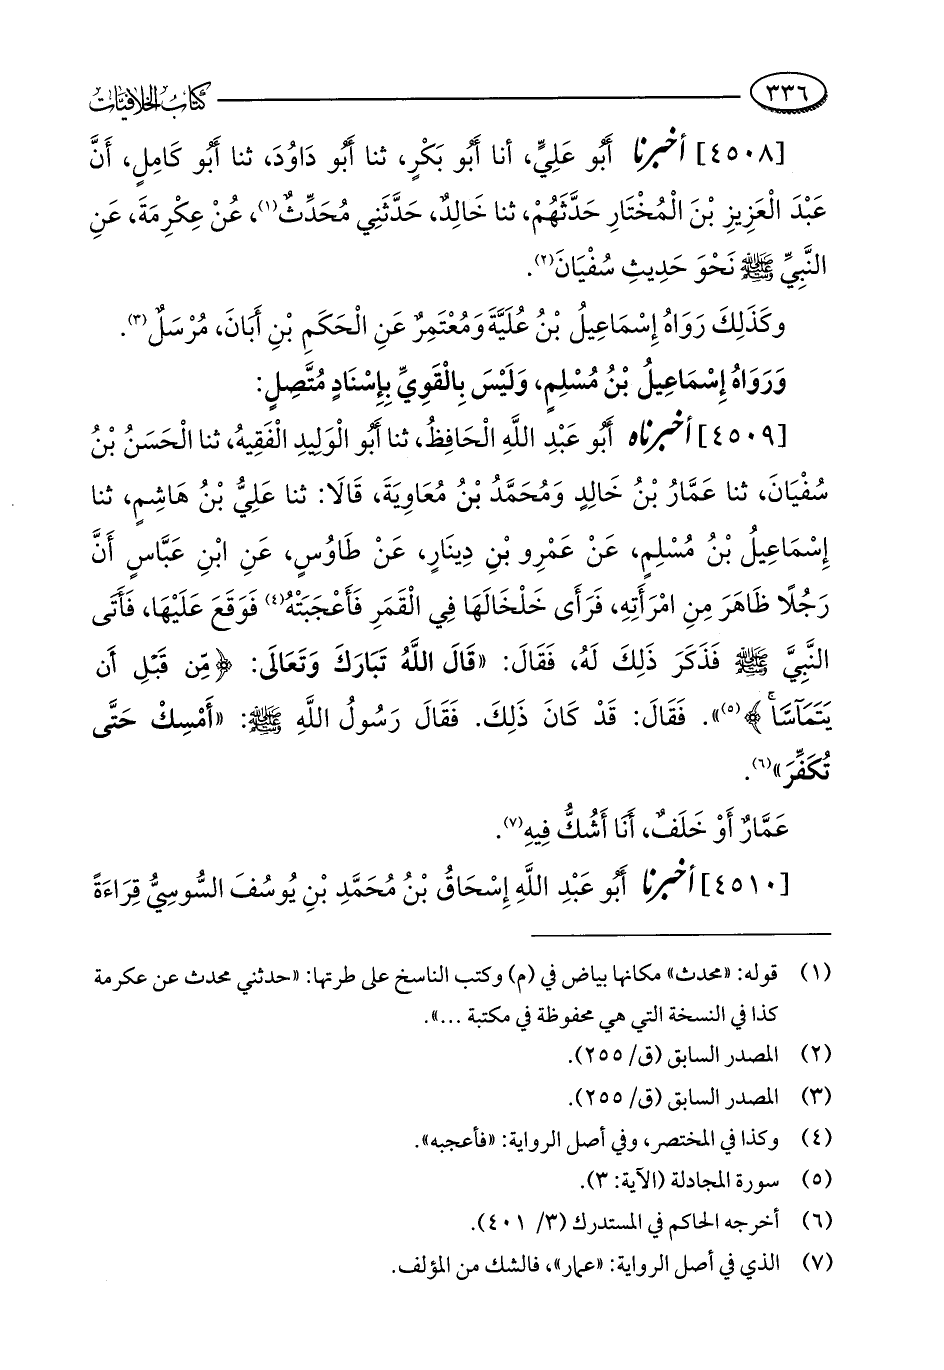 ٣٣٦ كتاب الخلافيات
[٤٥٠٨] أخبرنا أَبُو عَلِيٍّ، أنا أَبُو بَكْرٍ، ثنا أَبُو دَاوُدَ، ثنا أَبُو كَامِلٍ، أَنَّ
عَبْدَ الْعَزِيزِ بْنَ الْمُخْتَارِ حَدَّثَهُمْ، ثنا خَالِدٌ، حَدَّثَنِي مُحَدِّثٌ(١)، عَنْ عِكْرِمَةَ، عَنِ
النَّبِيِّ ﷺ نَحْوَ حَدِيثِ سُفْيَانَ(٢).
وكَذَلِكَ رَوَاهُ إِسْمَاعِيلُ بْنُ عُلَيَّةَ وَمُعْتَمِرٌ عَنِ الْحَكَمِ بْنِ أَبَانَ، مُرْسَلٌ(٣).
وَرَوَاهُ إِسْمَاعِيلُ بْنُ مُسْلِمٍ، وَلَيْسَ بِالْقَوِيِّ بِإِسْنَادٍ مُتَّصِلٍ:
[٤٥٠٩] أخبرناه أَبُو عَبْدِ اللَّهِ الْحَافِظُ، ثنا أَبُو الْوَلِيدِ الْفَقِيهُ، ثنا الْحَسَنُ بْنُ
سُفْيَانَ، ثنا عَمَّارُ بْنُ خَالِدٍ وَمُحَمَّدُ بْنُ مُعَاوِيَةَ، قَالَا: ثنا عَلِيُّ بْنُ هَاشِمٍ, ثنا
إِسْمَاعِيلُ بْنُ مُسْلِمٍ، عَنْ عَمْرِو بْنِ دِينَارٍ، عَنْ طَاوُسٍ، عَنِ ابْنِ عَبَّاسٍ أَنَّ
رَجُلًا ظَاهَرَ مِنِ امْرَأَتِهِ، فَرَأَى خَلْخَالَهَا فِي الْقَمَرِ فَأَعْجَبَتْهُ(٤) فَوَقَعَ عَلَيْهَا، فَأَتَى
النَّبِيَّ ﷺ فَذَكَرَ ذَلِكَ لَهُ، فَقَالَ: «قَالَ اللَّهُ تَبَارَكَ وَتَعَالَى: ﴿مِّن قَبْلِ أَن
يَتَمَآسَّاۚ﴾(٥)». فَقَالَ: قَدْ كَانَ ذَلِكَ. فَقَالَ رَسُولُ اللَّهِ ﷺ: «أَمْسِكْ حَتَّى
تُكَفِّرَ»(٦).
عَمَّارٌ أَوْ خَلَفٌ، أَنَا أَشُكُّ فِيهِ(٧).
[٤٥١٠] أخبرنا أَبُو عَبْدِ اللَّهِ إِسْحَاقُ بْنُ مُحَمَّدِ بْنِ يُوسُفَ السُّوسِيُّ قِرَاءَةً
(١) قوله: «محدث» مكانها بياض في (م) وكتب الناسخ على طرتها: «حدثني محدث عن عكرمة
كذا في النسخة التي هي محفوظة في مكتبة ...».
(٢) المصدر السابق (ق/ ٢٥٥).
(٣) المصدر السابق (ق/ ٢٥٥).
(٤) وكذا في المختصر، وفي أصل الرواية: «فأعجبه».
(٥) سورة المجادلة (الآية: ٣).
(٦) أخرجه الحاكم في المستدرك (٣/ ٤٠١).
(٧) الذي في أصل الرواية: «عمار»، فالشك من المؤلف.